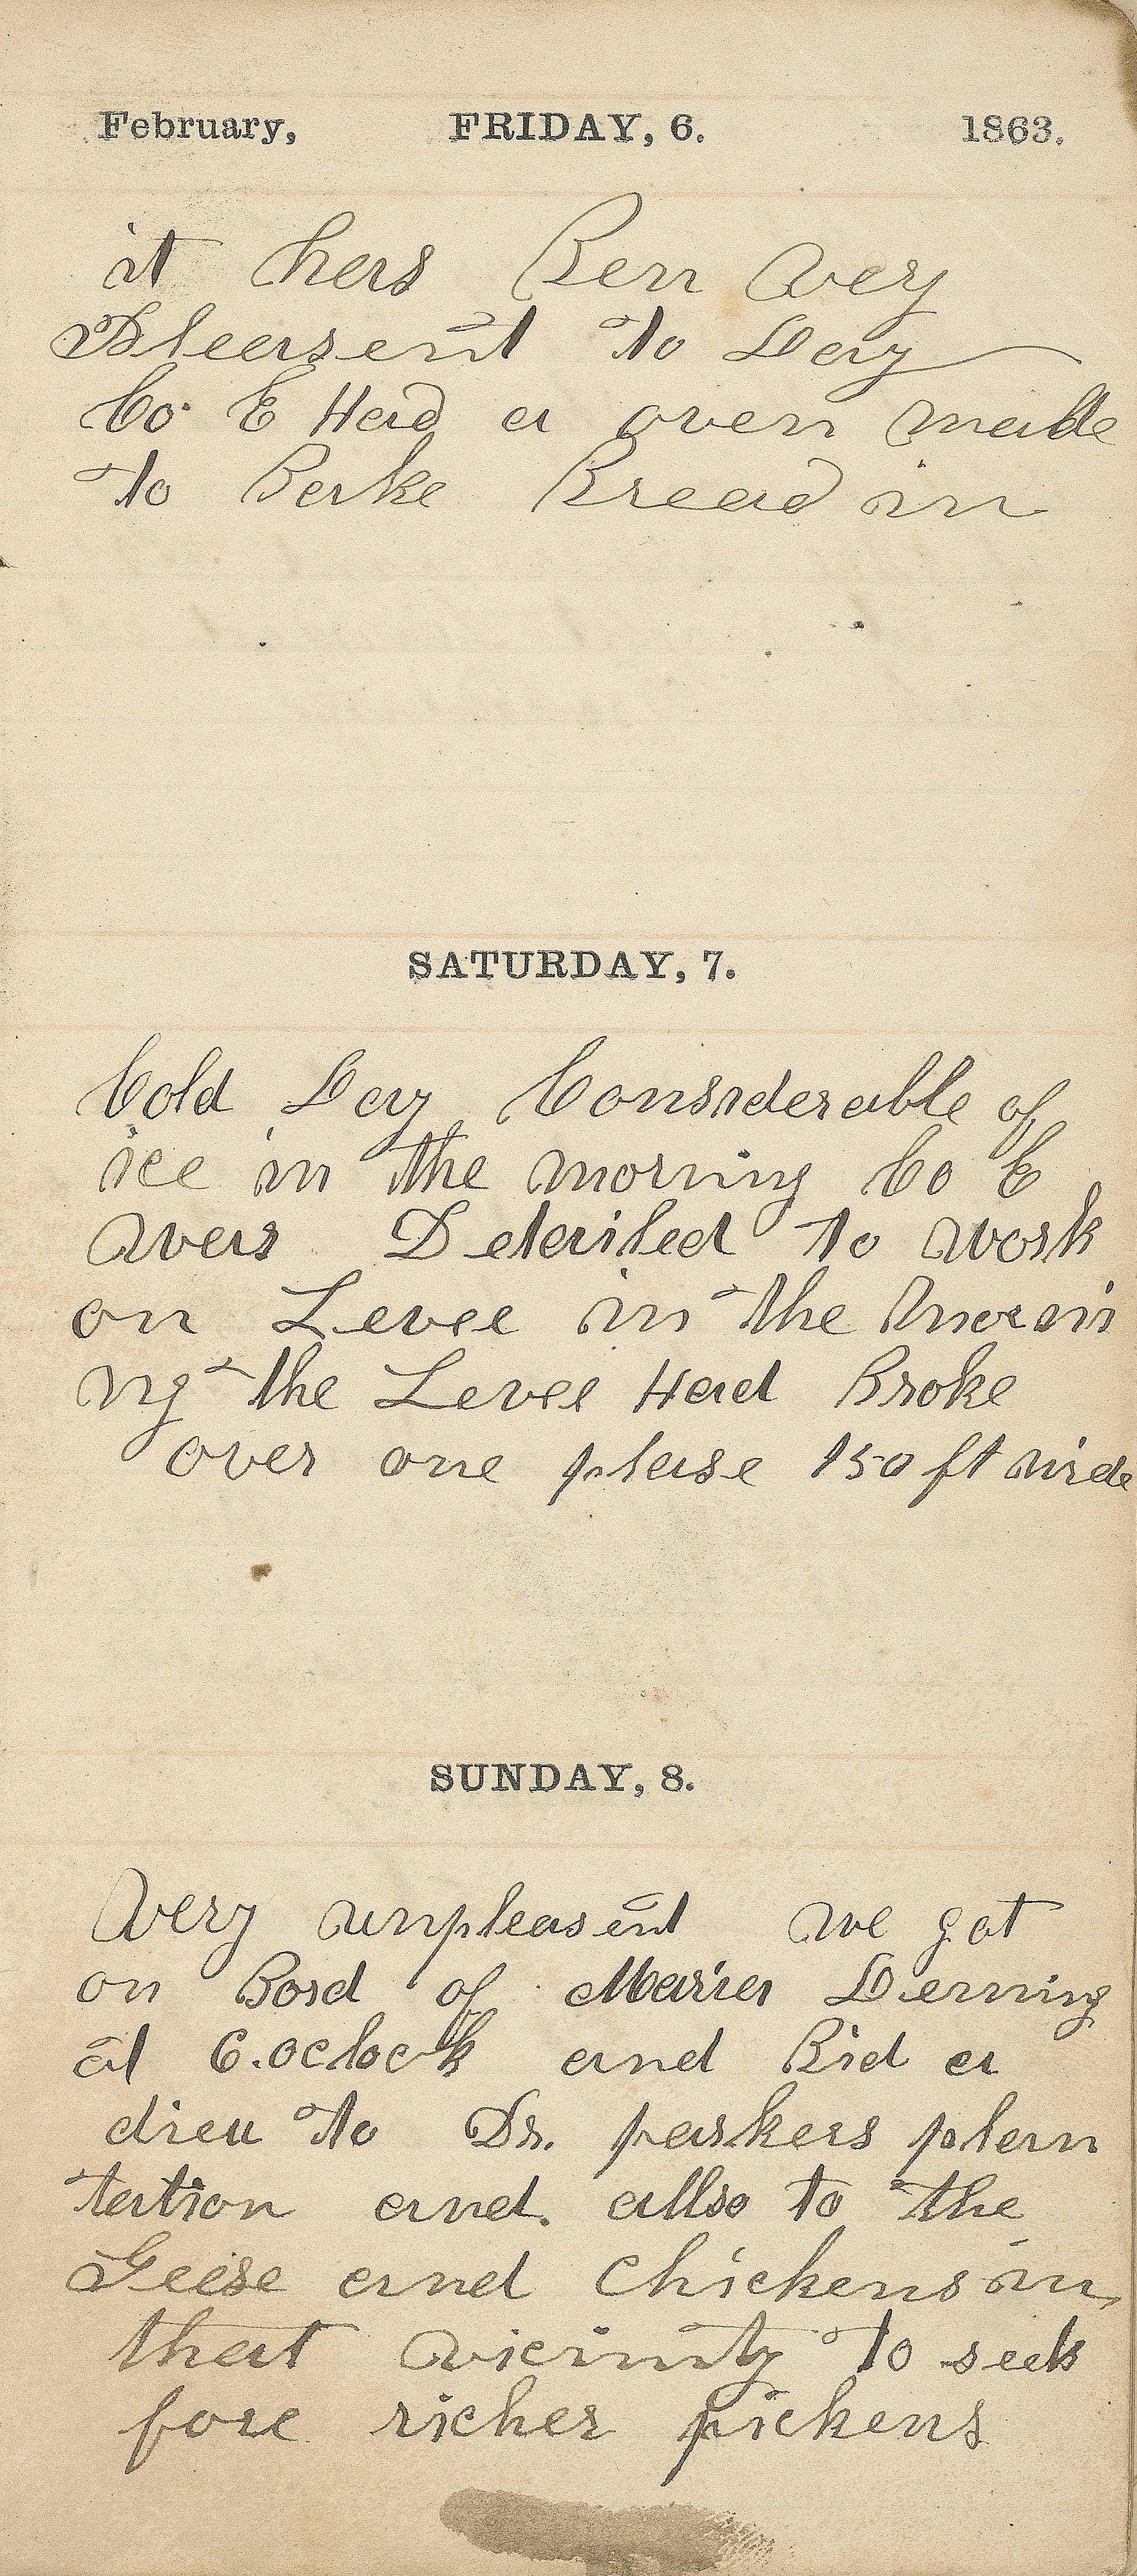 February, FRIDAY, 6. 1863.
it has Ben very
Pleasent to Day
Co E Had a oven made
to Bake Bread in
SATURDAY, 7.
Cold Day Considerable of
ice in the morning Co E
wers Detailed to work
on Levee in the morni
ng the Levee Had Broke
over one plase 150 ft wide
SUNDAY, 8.
Very unpleasent we got
on Bord of Maria Deming
at 6.oclock and Bid a
dieu to Dr. parkers plan
tation and. allso to the
Geese and Chickens in
that vicinity to seek
fore richer pickens